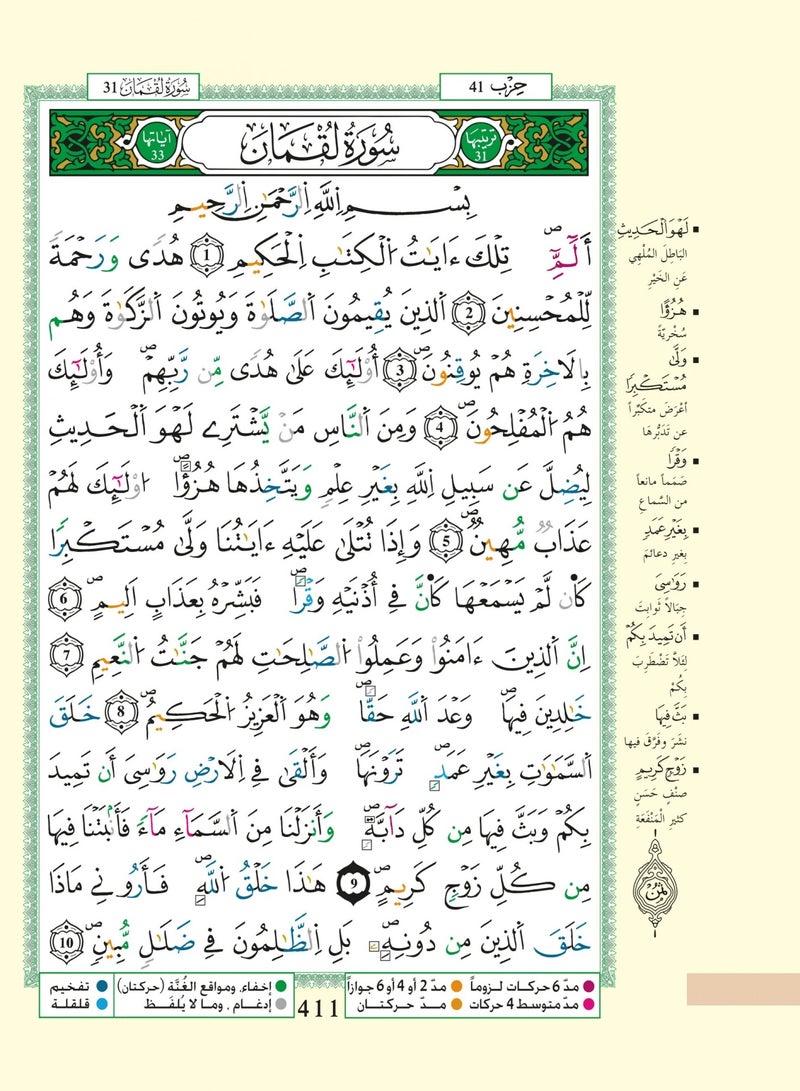 سُورَةُ لُقْمَانَ 31
حِزْب 41
ءَايَاتُهَا 33
سُورَةُ لُقْمَانَ
تَرْتِيبُهَا 31
بِسْمِ اِ۬للَّهِ اِ۬لرَّحْمَٰنِ اِ۬لرَّحِيمِ
أَلَٓمِّٓۖ تِلْكَ ءَايَٰتُ اُ۬لْكِتَٰبِ اِ۬لْحَكِيمِ 1 هُدىٗ وَرَحْمَةٗ
لِّلْمُحْسِنِينَ 2 اَ۬لذِينَ يُقِيمُونَ اَ۬لصَّلَوٰةَ وَيُوتُونَ اَ۬لزَّكَوٰةَ وَهُم
بِالَاخِرَةِ هُمْ يُوقِنُونَۖ 3 أُوْلَٰٓئِكَ عَلَىٰ هُدىٗ مِّن رَّبِّهِمْۖ وَأُوْلَٰٓئِكَ
هُمُ اُ۬لْمُفْلِحُونَۖ 4 وَمِنَ اَ۬لنَّاسِ مَنْ يَّشْتَرِے لَهْوَ اَ۬لْحَدِيثِ
لِيُضِلَّ عَن سَبِيلِ اِ۬للَّهِ بِغَيْرِ عِلْمٖ وَيَتَّخِذُهَا هُزُؤاًۖ ا۟وْلَٰٓئِكَ لَهُمْ
عَذَابٞ مُّهِينٞۖ 5 وَإِذَا تُتْلَىٰ عَلَيْهِ ءَايَٰتُنَا وَلَّىٰ مُسْتَكْبِراٗ
كَأَن لَّمْ يَسْمَعْهَا كَأَنَّ فِے أُذْنَيْهِ وَقْراٗۖ فَبَشِّرْهُ بِعَذَابٍ اَلِيمٍۖ 6
اِنَّ اَ۬لذِينَ ءَامَنُواْ وَعَمِلُواْ اُ۬لصَّٰلِحَٰتِ لَهُمْ جَنَّٰتُ اُ۬لنَّعِيمِ 7
خَٰلِدِينَ فِيهَاۖ وَعْدَ اَ۬للَّهِ حَقّاٗۖ وَهُوَ اَ۬لْعَزِيزُ اُ۬لْحَكِيمُۖ 8 خَلَقَ
اَ۬لسَّمَٰوَٰتِ بِغَيْرِ عَمَدٖۖ تَرَوْنَهَاۖ وَأَلْقَىٰ فِے اِ۬لَارْضِ رَوَٰسِيَ أَن تَمِيدَ
بِكُمْ وَبَثَّ فِيهَا مِن كُلِّ دَآبَّةٖۖ وَأَنزَلْنَا مِنَ اَ۬لسَّمَآءِ مَآءٗ فَأَنۢبَتْنَا فِيهَا
مِن كُلِّ زَوْجٖ كَرِيمٍۖ 9 هَٰذَا خَلْقُ اُ۬للَّهِۖ فَأَرُونِے مَاذَا
خَلَقَ اَ۬لذِينَ مِن دُونِهِۦۖ بَلِ اِ۬لظَّٰلِمُونَ فِے ضَلَٰلٖ مُّبِينٖۖ 10
▪ لَهْوَ اَ۬لْحَدِيثِ
البَاطِلَ المُلْهِي
عَنِ الخَيْرِ
▪ هُزُؤاً
سُخْرِيَّةً
▪ وَلَّىٰ
مُسْتَكْبِراٗ
أعْرَضَ متكَبِّراً
عن تَدَبُّرِهَا
▪ وَقْراٗ
صَمَماً مانعاً
من السَّماعِ
▪ بِغَيْرِ عَمَدٖ
بغيرِ دعائمَ
▪ رَوَٰسِيَ
جِبَالاً ثَوابِتَ
▪ أَن تَمِيدَ بِكُمْ
لِئَلاَّ تَضْطَرِبَ
بِكُمْ
▪ بَثَّ فِيهَا
نشَرَ وفَرَّقَ فيها
▪ زَوْجٖ كَرِيمٍ
صِنْفٍ حَسَنٍ
كثيرِ الْمَنْفَعَةِ
ثُمُن
● مدّ 6 حركات لـزوماً ● مدّ 2 أو 4 أو 6 جوازاً
● مدّ متوسط 4 حركات ● مـدّ حـركتـان
411
● إخفاء، ومواقع الغُنَّة (حركتان) ● تفخيم
● إدغـام ، وما لا يُلفَـظ ● قلقلة